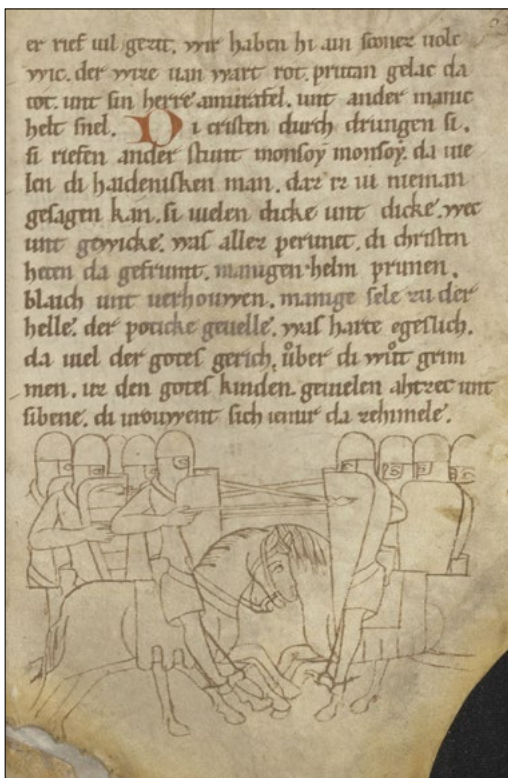 er rief uil gezit. wir haben hi ain sconez uolc
wic. der wize uan wart rot. pritan gelac da
tot. unt sin herre amirafel. unt ander manic
helt snel. Di cristen durch drungen si.
si riefen ander stunt monsoy monsoy. da uie
len di haidenisken man. daz iz iu nieman
gesagen kan. si uielen dicke unt dicke. wec
unt gewicke. was allez perunet. di christen
heten da gefrumt. manigen helm prunen.
blaich unt uerhouwen. manige sele zu der
helle. der poticke geuelle. was harte egeslich.
da uiel der gotes gerich. über di wůt grim
men. uz den gotes kinden. geuielen ahzec unt
sibene. di urouwent sich iemir da zehimele.